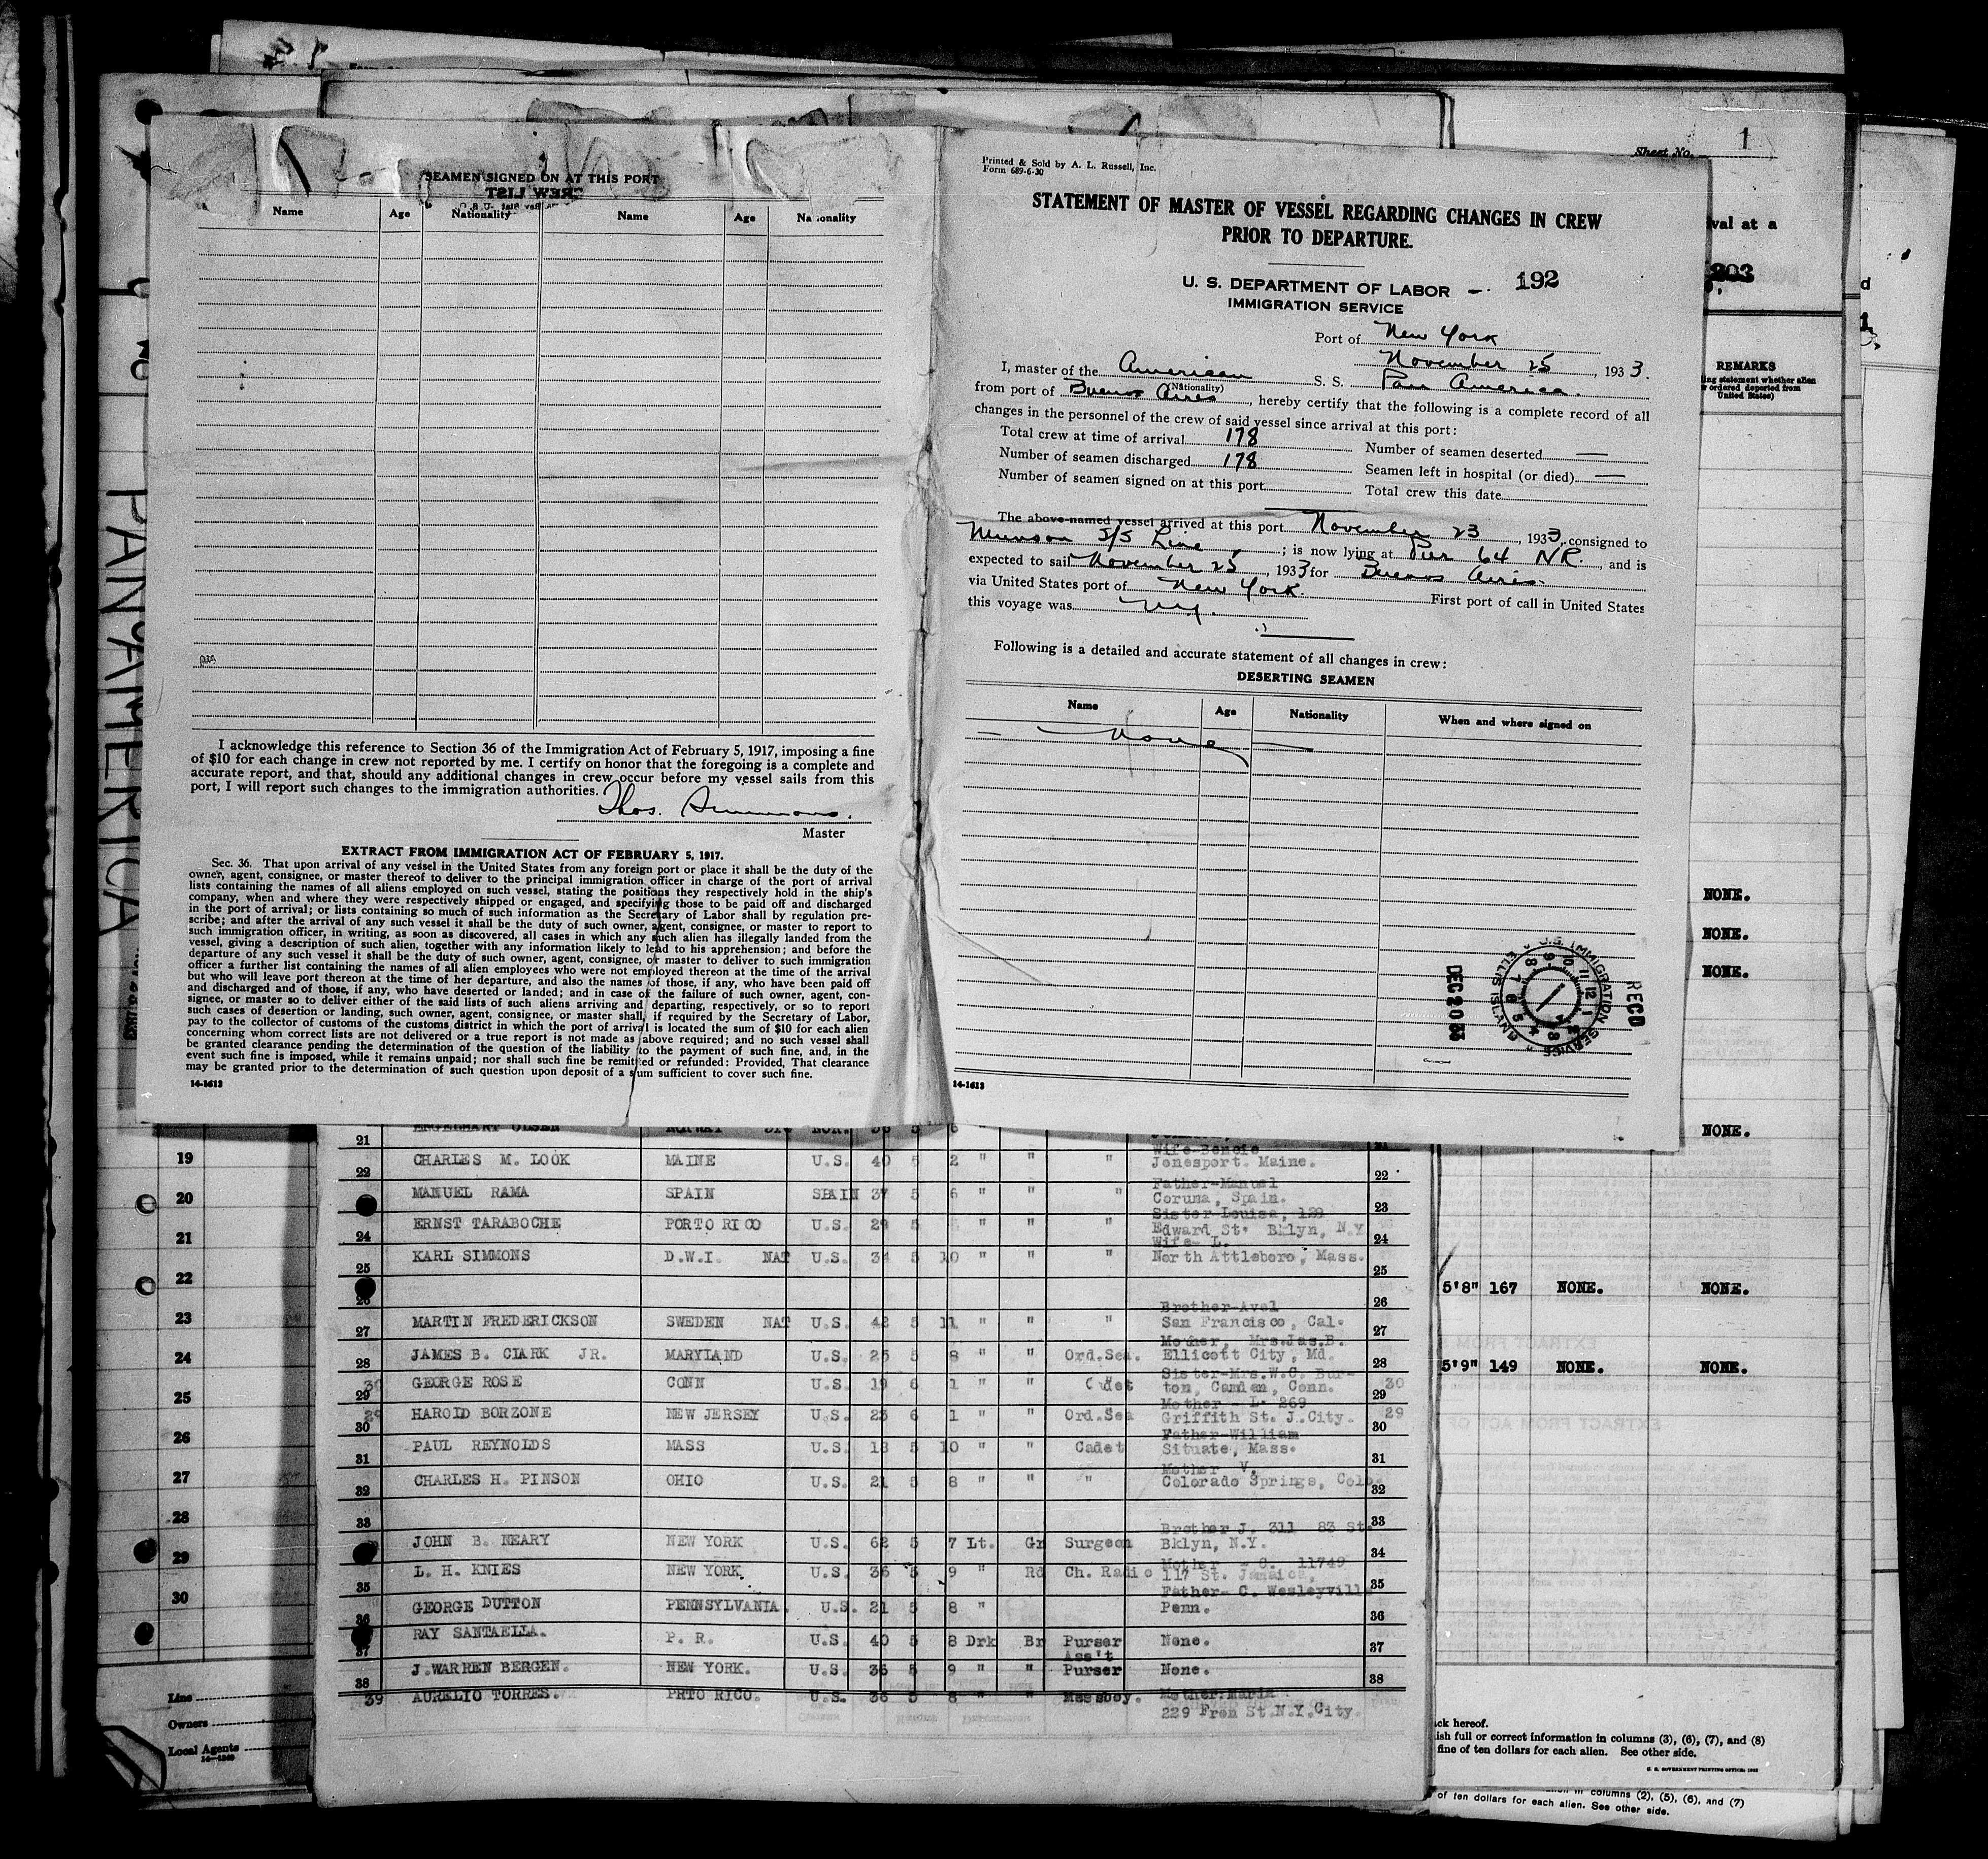 SEAMEN SIGNED ON AT THIS PORT
CREW LIST
Name Age Nationality Name Age Nationality
I acknowledge this reference to Section 36 of the Immigration Act of February 5, 1917, imposing a fine
of $10 for each change in crew not reported by me. I certify on honor that the foregoing is a complete and
accurate report, and that, should any additional changes in crew occur before my vessel sails from this
port, I will report such changes to the immigration authorities.
Thos. Simmons.
Master
EXTRACT FROM IMMIGRATION ACT OF FEBRUARY 5, 1917.
Sec. 36. That upon arrival of any vessel in the United States from any foreign port or place it shall be the duty of the
owner, agent, consignee, or master thereof to deliver to the principal immigration officer in charge of the port of arrival
lists containing the names of all aliens employed on such vessel, stating the positions they respectively hold in the ship's
company, when and where they were respectively shipped or engaged, and specifying those to be paid off and discharged
in the port of arrival; or lists containing so much of such information as the Secretary of Labor shall by regulation pre-
scribe; and after the arrival of any such vessel it shall be the duty of such owner, agent, consignee, or master to report to
such immigration officer, in writing, as soon as discovered, all cases in which any such alien has illegally landed from the
vessel, giving a description of such alien, together with any information likely to lead to his apprehension; and before the
departure of any such vessel it shall be the duty of such owner, agent, consignee, or master to deliver to such immigration
officer a further list containing the names of all alien employees who were not employed thereon at the time of the arrival
but who will leave port thereon at the time of her departure, and also the names of those, if any, who have been paid off
and discharged and of those, if any, who have deserted or landed; and in case of the failure of such owner, agent, con-
signee, or master so to deliver either of the said lists of such aliens arriving and departing, respectively, or so to report
such cases of desertion or landing, such owner, agent, consignee, or master shall, if required by the Secretary of Labor,
pay to the collector of customs of the customs district in which the port of arrival is located the sum of $10 for each alien
concerning whom correct lists are not delivered or a true report is not made as above required; and no such vessel shall
be granted clearance pending the determination of the question of the liability to the payment of such fine, and, in the
event such fine is imposed, while it remains unpaid; nor shall such fine be remitted or refunded: Provided, That clearance
may be granted prior to the determination of such question upon deposit of a sum sufficient to cover such fine.
14-1613
Printed & Sold by A. L. Russell, Inc.
Form 689-6-30
STATEMENT OF MASTER OF VESSEL REGARDING CHANGES IN CREW
PRIOR TO DEPARTURE.
U. S. DEPARTMENT OF LABOR -. 192
IMMIGRATION SERVICE
Port of New York
November 25, 1933.
I, master of the American S. S. Pan America.
(Nationality)
from port of Buenos Aires, hereby certify that the following is a complete record of all
changes in the personnel of the crew of said vessel since arrival at this port:
Total crew at time of arrival 178 Number of seamen deserted —
Number of seamen discharged 178 Seamen left in hospital (or died) —
Number of seamen signed on at this port Total crew this date
The above-named vessel arrived at this port November 23, 1933, consigned to
Munson S/S Line; is now lying at Pier 64 NR., and is
expected to sail November 25, 1933 for Buenos Aires.
via United States port of New York. First port of call in United States
this voyage was NY.
Following is a detailed and accurate statement of all changes in crew:
DESERTING SEAMEN
Name Age Nationality When and where signed on
— None —
RECD
U.S. IMMIGRATION SERVICE
ELLIS ISLAND
DEC 20 33
14-1613
PANAMERICA
Sheet No. 1
val at a
203
REMARKS
ing statement whether alien
r ordered deported from
United States)
NONE.
NONE.
NONE.
NONE.
5'8" 167 NONE. NONE.
5'9" 149 NONE. NONE.
19
20
21
22
23
24
25
26
27
28
29
30
Line
Owners
Local Agents
21 ENGELHART OLSEN NORWAY NOR. 36 5 6
Wife-Bencie
22 CHARLES M. LOOK MAINE U.S. 40 5 2 " " " Jonesport. Maine. 22
Father-Manuel
MANUEL RAMA SPAIN SPAIN 37 5 6 " " " Coruna, Spain. 23
Sister Louisa, 129
24 ERNST TARABOCHE PORTO RICO U.S. 29 5 " " " Edward St. Bklyn, N.Y 24
Wife- L.
25 KARL SIMMONS D.W.I. NAT U.S. 34 5 10 " " " North Attleboro, Mass. 25
26 26
Brother-Avel
27 MARTIN FREDERICKSON SWEDEN NAT U.S. 42 5 11 " " " San Francisco, Cal. 27
Mother, Mrs.Jas.B.
28 JAMES B. CLARK JR. MARYLAND U.S. 25 5 8 " " Ord.Sea. Ellicott City, Md. 28
Sister-Mrs.W.C. Bur-
30 29 GEORGE ROSE CONN U.S. 19 6 1 " " Cadet ton, Camden, Conn. 29 30
Mother - L. 269
29 30 HAROLD BORZONE NEW JERSEY U.S. 23 6 1 " " Ord.Sea Griffith St. J.City. 30 29
Father-William
31 PAUL REYNOLDS MASS U.S. 18 5 10 " " Cadet Situate, Mass. 31
Mother V.
32 CHARLES H. PINSON OHIO U.S. 21 5 8 " " " Colorado Springs, Colo. 32
33 33
Brother J. 311 83 St.
JOHN B. NEARY NEW YORK U.S. 62 5 7 Lt. Gr Surgeon Bklyn, N.Y. 34
Mother - C. 11749
35 L. H. KNIES NEW YORK. U.S. 36 5 9 " Rd Ch. Radio 117 St. Jamaica, 35
Father- C. Wesleyvill
36 GEORGE DUTTON PENNSYLVANIA. U.S. 21 5 8 " Penn. 36
37 RAY SANTAELLA. P. R. U.S. 40 5 8 Drk Br Purser None. 37
Ass't
38 J.WARREN BERGEN. NEW YORK. U.S. 36 5 9 " " Purser None. 38
39 AURELIO TORRES. PRTO RICO. U.S. 36 5 8 " " Messboy. Mother:Maria
229 Fron St.N.Y.City.
ack hereof.
ish full or correct information in columns (3), (6), (7), and (8)
fine of ten dollars for each alien. See other side.
U. S. GOVERNMENT PRINTING OFFICE: 1932
in columns (2), (5), (6), and (7)
of ten dollars for each alien. See other side.